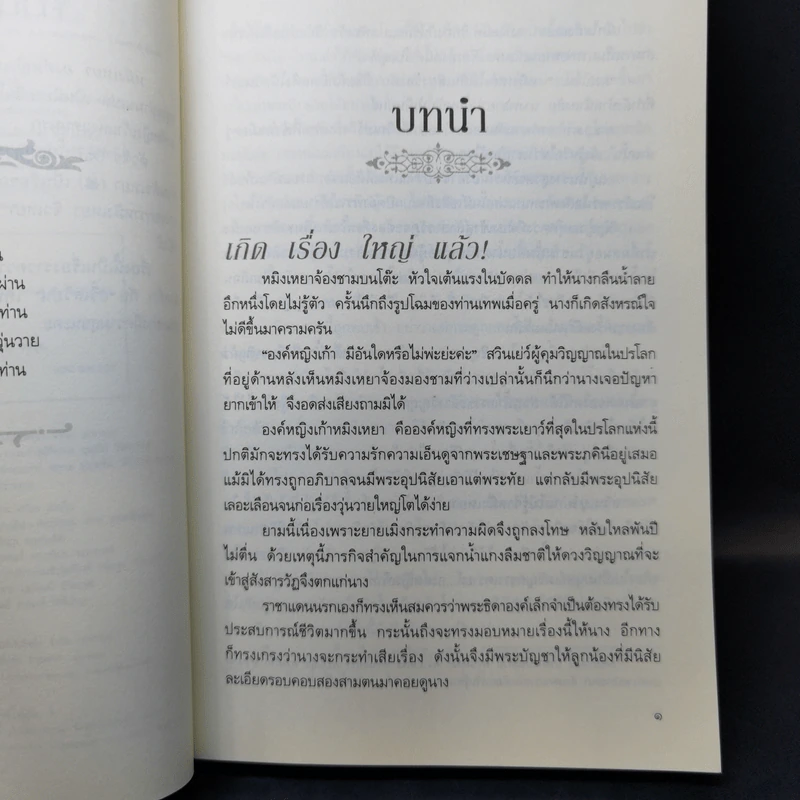 น
ผ่าน
ท่าน
วุ่นวาย
ท่าน
บทนำ
เกิด เรื่อง ใหญ่ แล้ว!
หมิงเหยาจ้องชามบนโต๊ะ หัวใจเต้นแรงในบัดดล ทำให้นางกลืนน้ำลาย
อีกหนึ่งโดยไม่รู้ตัว ครั้นนึกถึงรูปโฉมของท่านเทพเมื่อครู่ นางก็เกิดสังหรณ์ใจ
ไม่ดีขึ้นมาครามครัน
“องค์หญิงเก้า มีอันใดหรือไม่พ่ะย่ะค่ะ” สวินเย่ว์ผู้คุมวิญญาณในปรโลก
ที่อยู่ด้านหลังเห็นหมิงเหยาจ้องมองชามที่ว่างเปล่านั้นก็นึกว่านางเจอปัญหา
ยากเข้าให้ จึงอดส่งเสียงถามมิได้
องค์หญิงเก้าหมิงเหยา คือองค์หญิงที่ทรงพระเยาว์ที่สุดในปรโลกแห่งนี้
ปกติมักจะทรงได้รับความรักความเอ็นดูจากพระเชษฐาและพระภคินีอยู่เสมอ
แม้มิได้ทรงถูกอภิบาลจนมีพระอุปนิสัยเอาแต่พระทัย แต่กลับมีพระอุปนิสัย
เลอะเลือนจนก่อเรื่องวุ่นวายใหญ่โตได้ง่าย
ยามนี้เนื่องเพราะยายเมิ่งกระทำความผิดจึงถูกลงโทษ หลับใหลพันปี
ไม่ตื่น ด้วยเหตุนี้ภารกิจสำคัญในการแจกน้ำแกงลืมชาติให้ดวงวิญญาณที่จะ
เข้าสู่สังสารวัฏจึงตกแก่นาง
ราชาแดนนรกเองก็ทรงเห็นสมควรว่าพระธิดาองค์เล็กจำเป็นต้องทรงได้รับ
ประสบการณ์ชีวิตมากขึ้น กระนั้นถึงจะทรงมอบหมายเรื่องนี้ให้นาง อีกทาง
ก็ทรงเกรงว่านางจะกระทำเสียเรื่อง ดังนั้นจึงมีพระบัญชาให้ลูกน้องที่มีนิสัย
ละเอียดรอบคอบสองสามตนมาคอยดูนาง
๑